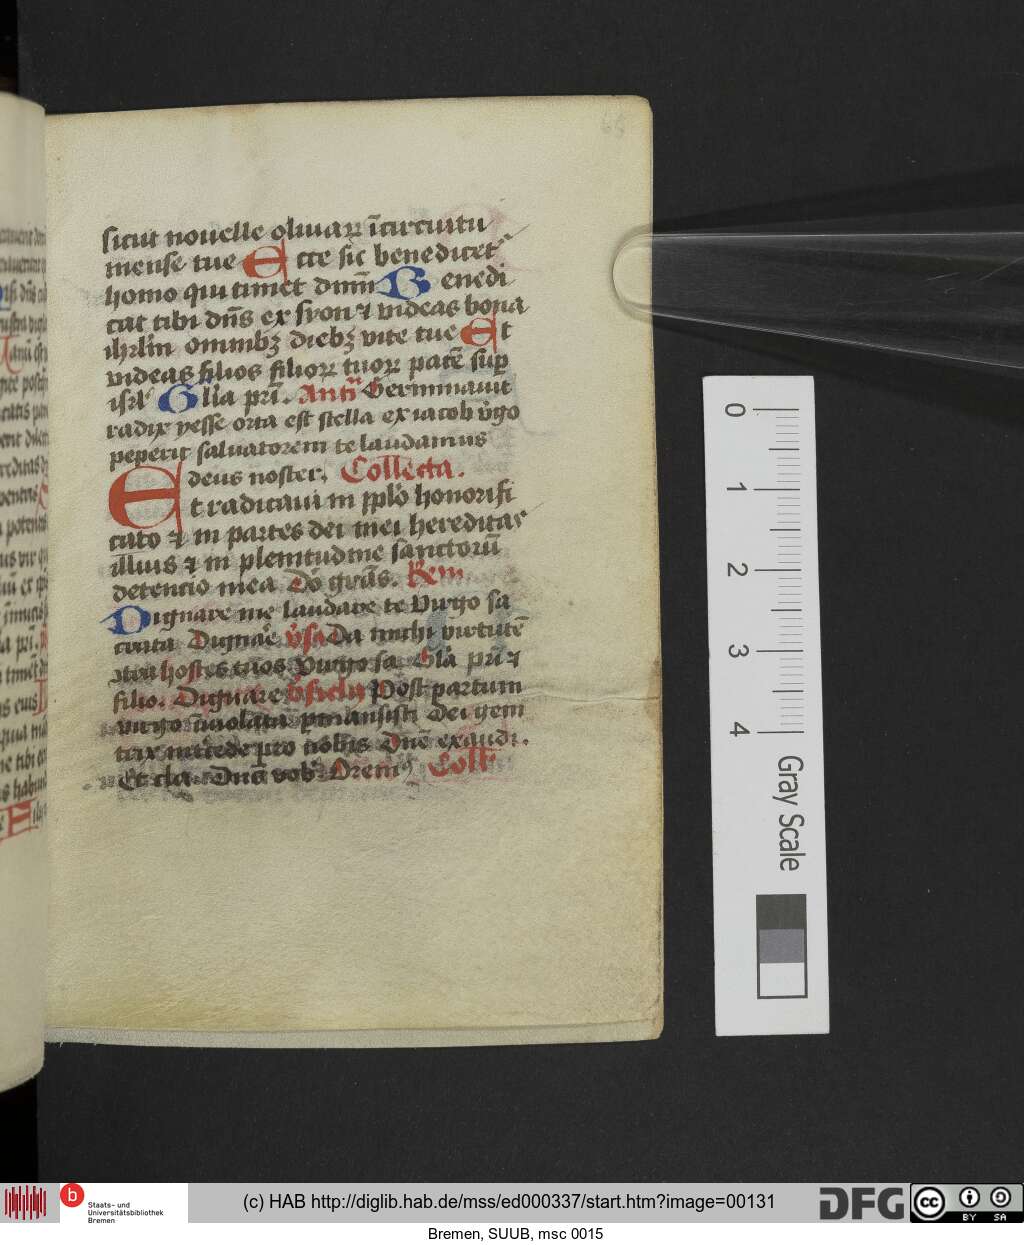 66
sicut nouelle oliuaꝝ ī circuitu
mense tue Ecce sic benedicet᷑
homo qui timet dnm̄ Benedi
cat tibi dn̄s ex syon ⁊ videas bona
ihrlm̄ omnibꝫ diebꝫ vite tue Et
videas filios filioꝝ tuoꝝ pacē sup̄
isrl̄ Gl̄ia pr̄i. Antī Germinauit
radix yesse orta est stella ex iacob v̓go
peperit saluatorem te laudamus
deus noster. Collecta.
Et radicaui in pplō honorifi
cato ⁊ in partes dei mei hereditas
illius ⁊ in plenitudine sanctorū
detencio mea Dō grās.
Dignare me laudare te virgo sa
crata Dignaē v̓s Da michi virtutē
ꝯtra hostes tuos Virgo sa. Gl̄a pr̄i ⁊
filio. Dignare Post partum
virgo inuiolata pmansisti Dei geni
trix intercede pro nobis Dn̄e exaudi.
Et cla. Dn̄s vob Orem⁹ Coll
0
1
2
3
4
Gray Scale
b
Staats- und
Universitätsbibliothek
Bremen
(c) HAB http://diglib.hab.de/mss/ed000337/start.htm?image=00131
DFG
cc
BY SA
Bremen, SUUB, msc 0015